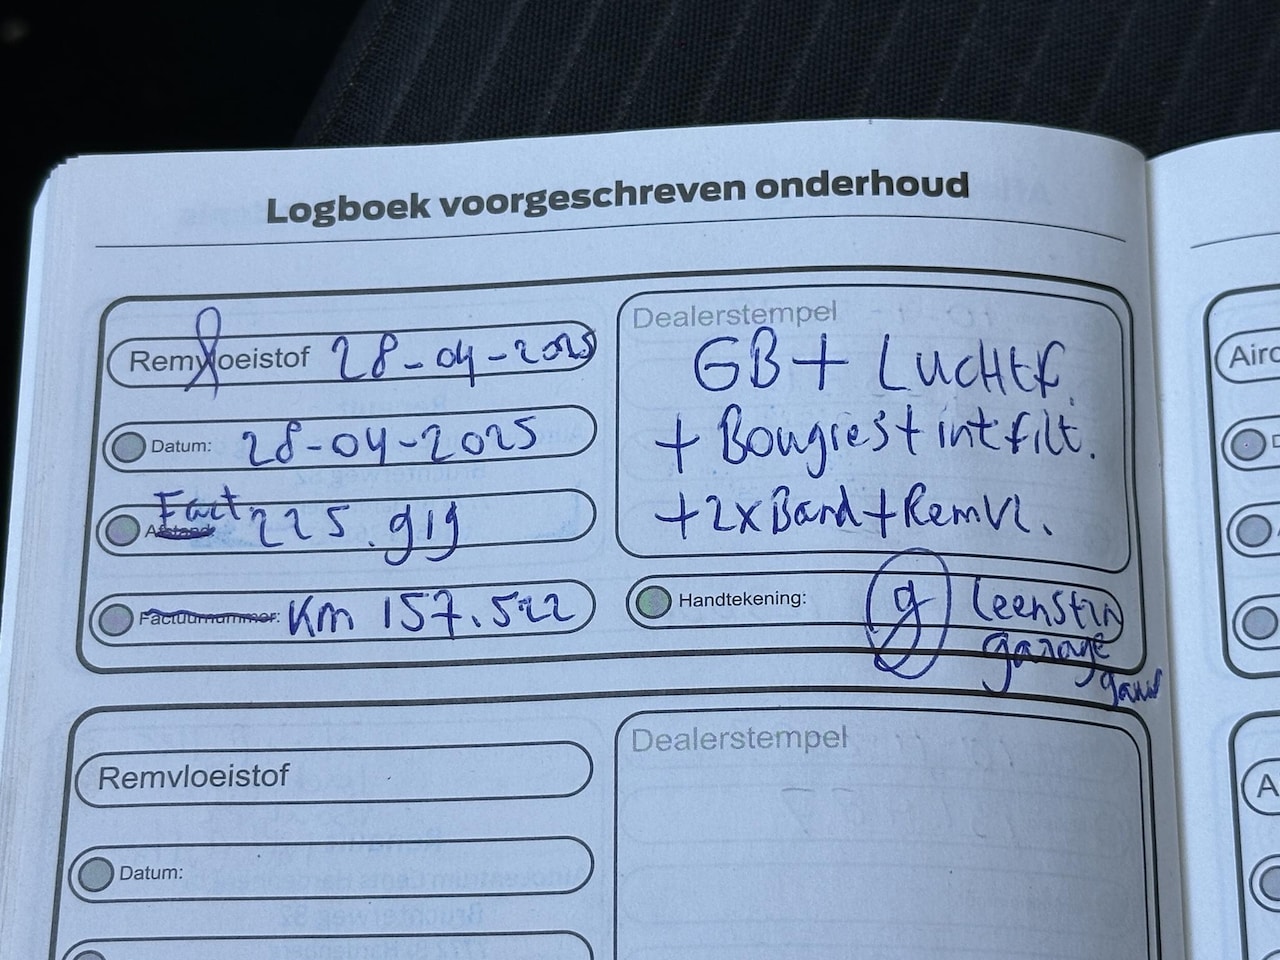 Logboek voorgeschreven onderhoud
Remvloeistof 28-04-2025
Datum: 28-04-2025
Fact 225.919
Afstand
Factuurnummer: Km 157.522
Dealerstempel
GB + Luchtf.
+ Bougies + intfilt.
+ 2x Band + Remvl.
Handtekening:
garage
Remvloeistof
Datum:
Dealerstempel